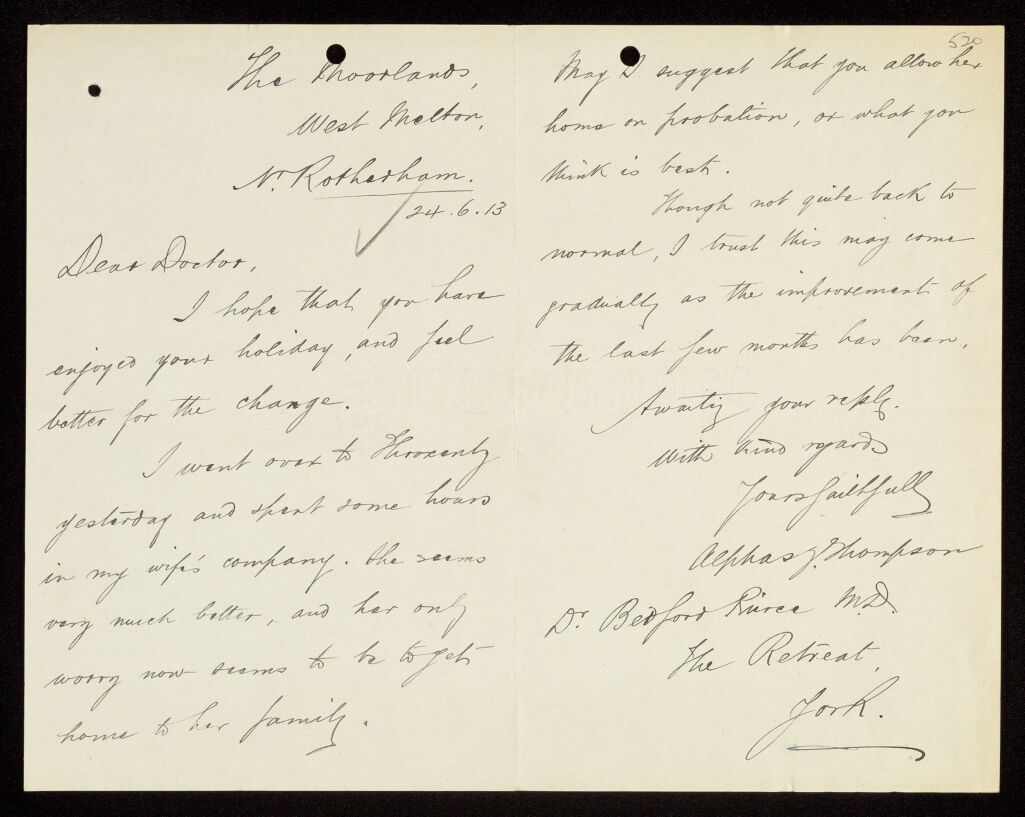 The Moorlands,
West Melton,
Nr. Rotherham.
24.6.13
Dear Doctor,
I hope that you have
enjoyed your holiday, and feel
better for the change.
I went over to Throxenby
yesterday and spent some hours
in my wife's company. She seems
very much better, and her only
worry now seems to be to get
home to her family.
520
May I suggest that you allow her
home on probation, or what you
think is best.
Though not quite back to
normal, I trust this may come
gradually as the improvement of
the last few months has been.
Awaiting your reply.
With kind regards
Yours faithfully
Alphas J. Thompson
Dr. Bedford Pierce M.D.
The Retreat,
York.